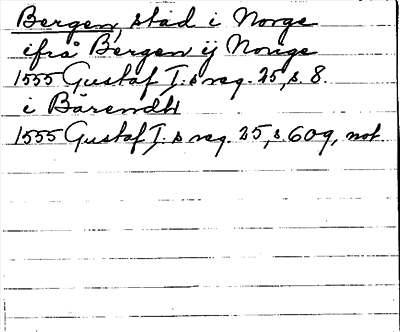 Bergen, stad i Norge
ifrå Bergen ij Norige
1555 Gustaf I:s reg. 25, s. 8.
i Bärendh
1555 Gustaf I:s reg. 25, s. 609, not